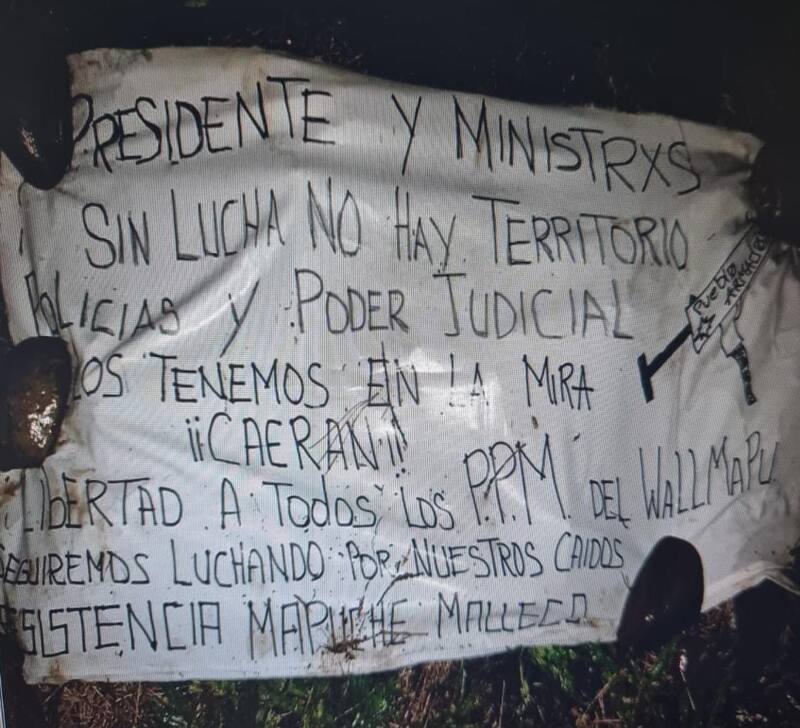 PRESIDENTE Y MINISTRXS
SIN LUCHA NO HAY TERRITORIO
POLICIAS Y PODER JUDICIAL
LOS TENEMOS EN LA MIRA
¡¡CAERAN!!
LIBERTAD A TODOS LOS P.P.M. DEL WALLMAPU
SEGUIREMOS LUCHANDO POR NUESTROS CAIDOS
ESISTENCIA MAPUCHE MALLECO
Pueblo
ARMADO